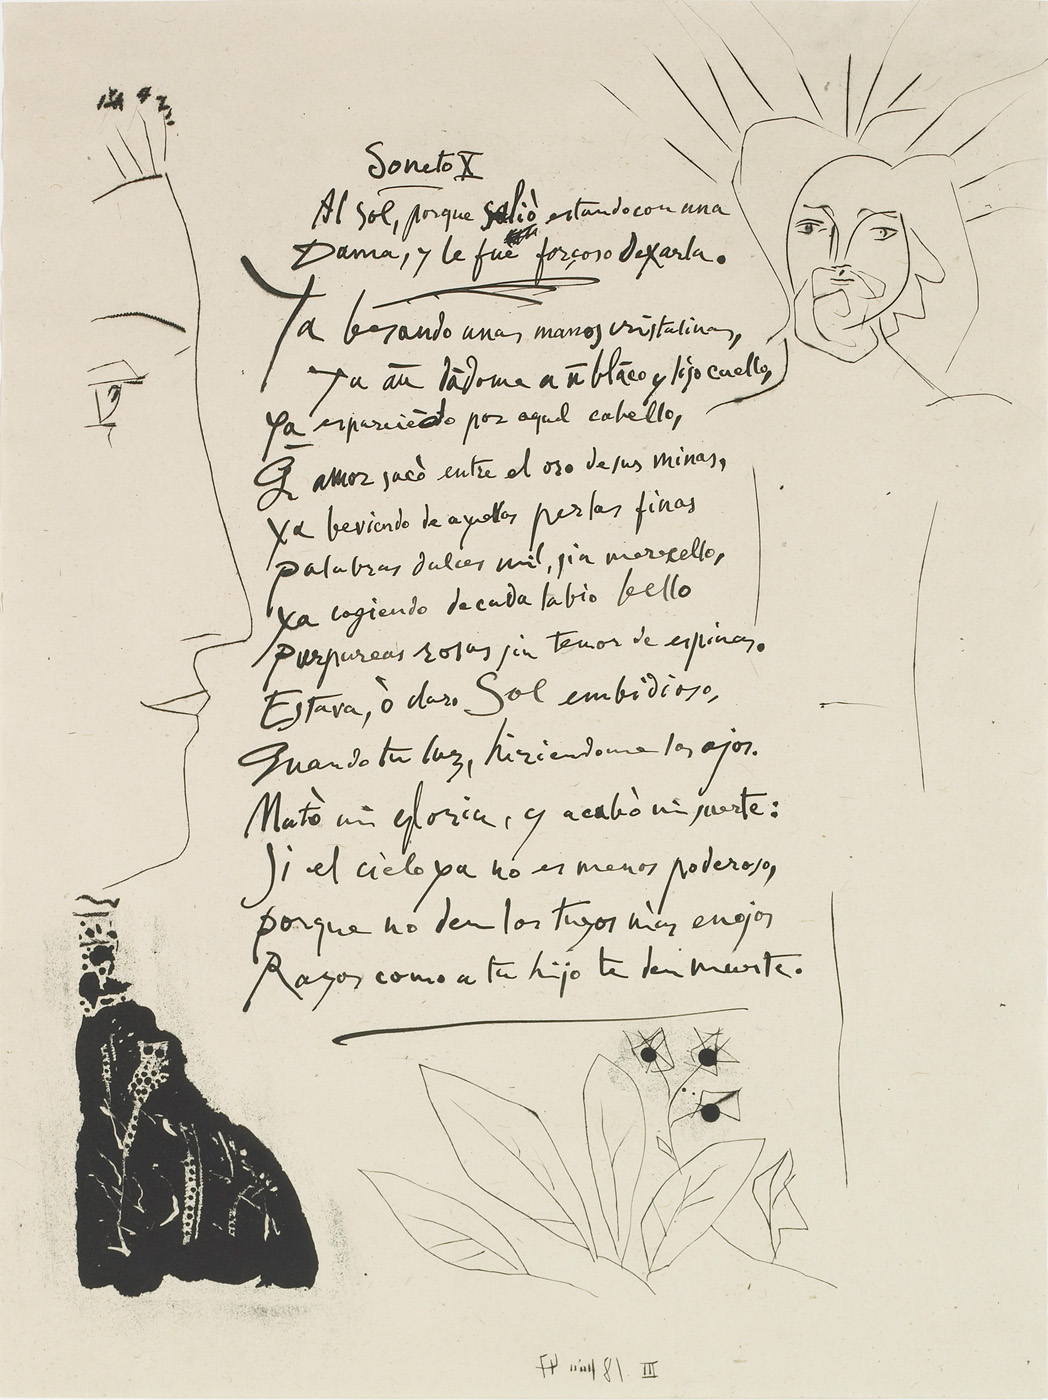 Soneto X
Al Sol, porque saliò estando con una
Dama, y le fuè forçoso dexarla.
Ya besando unas manos cristalinas,
Ya añudādome a ū blāco y liso cuello,
Ya esparciēdo por aquel cabello,
Q̄ amor sacò entre el oro de sus minas,
Ya beviendo de aquellas perlas finas
palabras dulces mil, sin merecello,
Ya cogiendo de cada labio bello
purpureas rosas sin temor de espinas.
Estava, ò claro Sol embidioso,
Quando tu luz, hiriendome los ojos.
Matò mi gloria, y acabò mi suerte:
Si el cielo ya no es menos poderoso,
porque no den los tuyos màs enojos
Rayos como a tu hijo te den muerte.
III